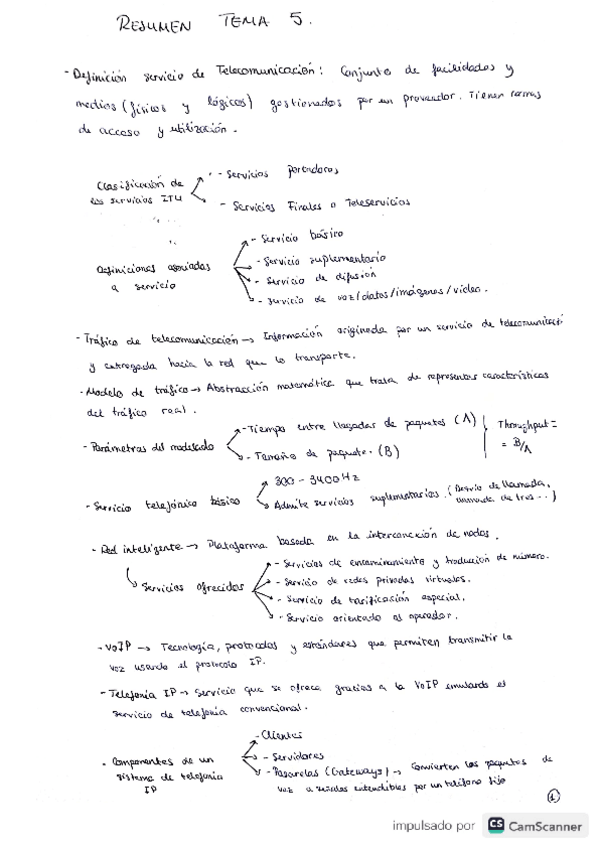 RESUMEN TEMA 5.
- Definición servicio de Telecomunicación: Conjunto de facilidades y
medios (físicos y lógicos) gestionados por un proveedor. Tienen normas
de acceso y utilización.
Clasificación de
los servicios ITU
- Servicios portadores
- Servicios Finales o Teleservicios
Definiciones asociadas
a servicio
- Servicio básico
- Servicio suplementario
- Servicio de difusión
- Servicio de voz/datos/imágenes/video.
- Tráfico de telecomunicación → Información originada por un servicio de telecomunicaci
y entregada hacia la red que lo transporte.
- Modelo de tráfico → Abstracción matemática que trata de representar características
del tráfico real.
- Parámetros del modelado
- Tiempo entre llegadas de paquetes (Λ)
- Tamaño de paquete. (B)
Throughput =
= B/Λ
- Servicio telefónico básico
300 - 3400 Hz
Admite servicios suplementarios. (Desvío de llamada,
llamada de tres...)
- Red inteligente → Plataforma basada en la interconexión de nodos.
Servicios ofrecidos
- Servicios de encaminamiento y traducción de número.
- Servicio de redes privadas virtuales.
- Servicio de tarificación especial.
- Servicio orientado al operador.
- VoIP → Tecnología, protocolos y estándares que permiten transmitir la
voz usando el protocolo IP.
- Telefonía IP → Servicio que se ofrece gracias a la VoIP emulando el
servicio de telefonía convencional.
- Componentes de un
sistema de telefonía
IP
- Clientes
- Servidores
- Pasarelas (Gateways) → Convierten los paquetes de
voz a señales entendibles por un teléfono fijo
1
impulsado por CS CamScanner